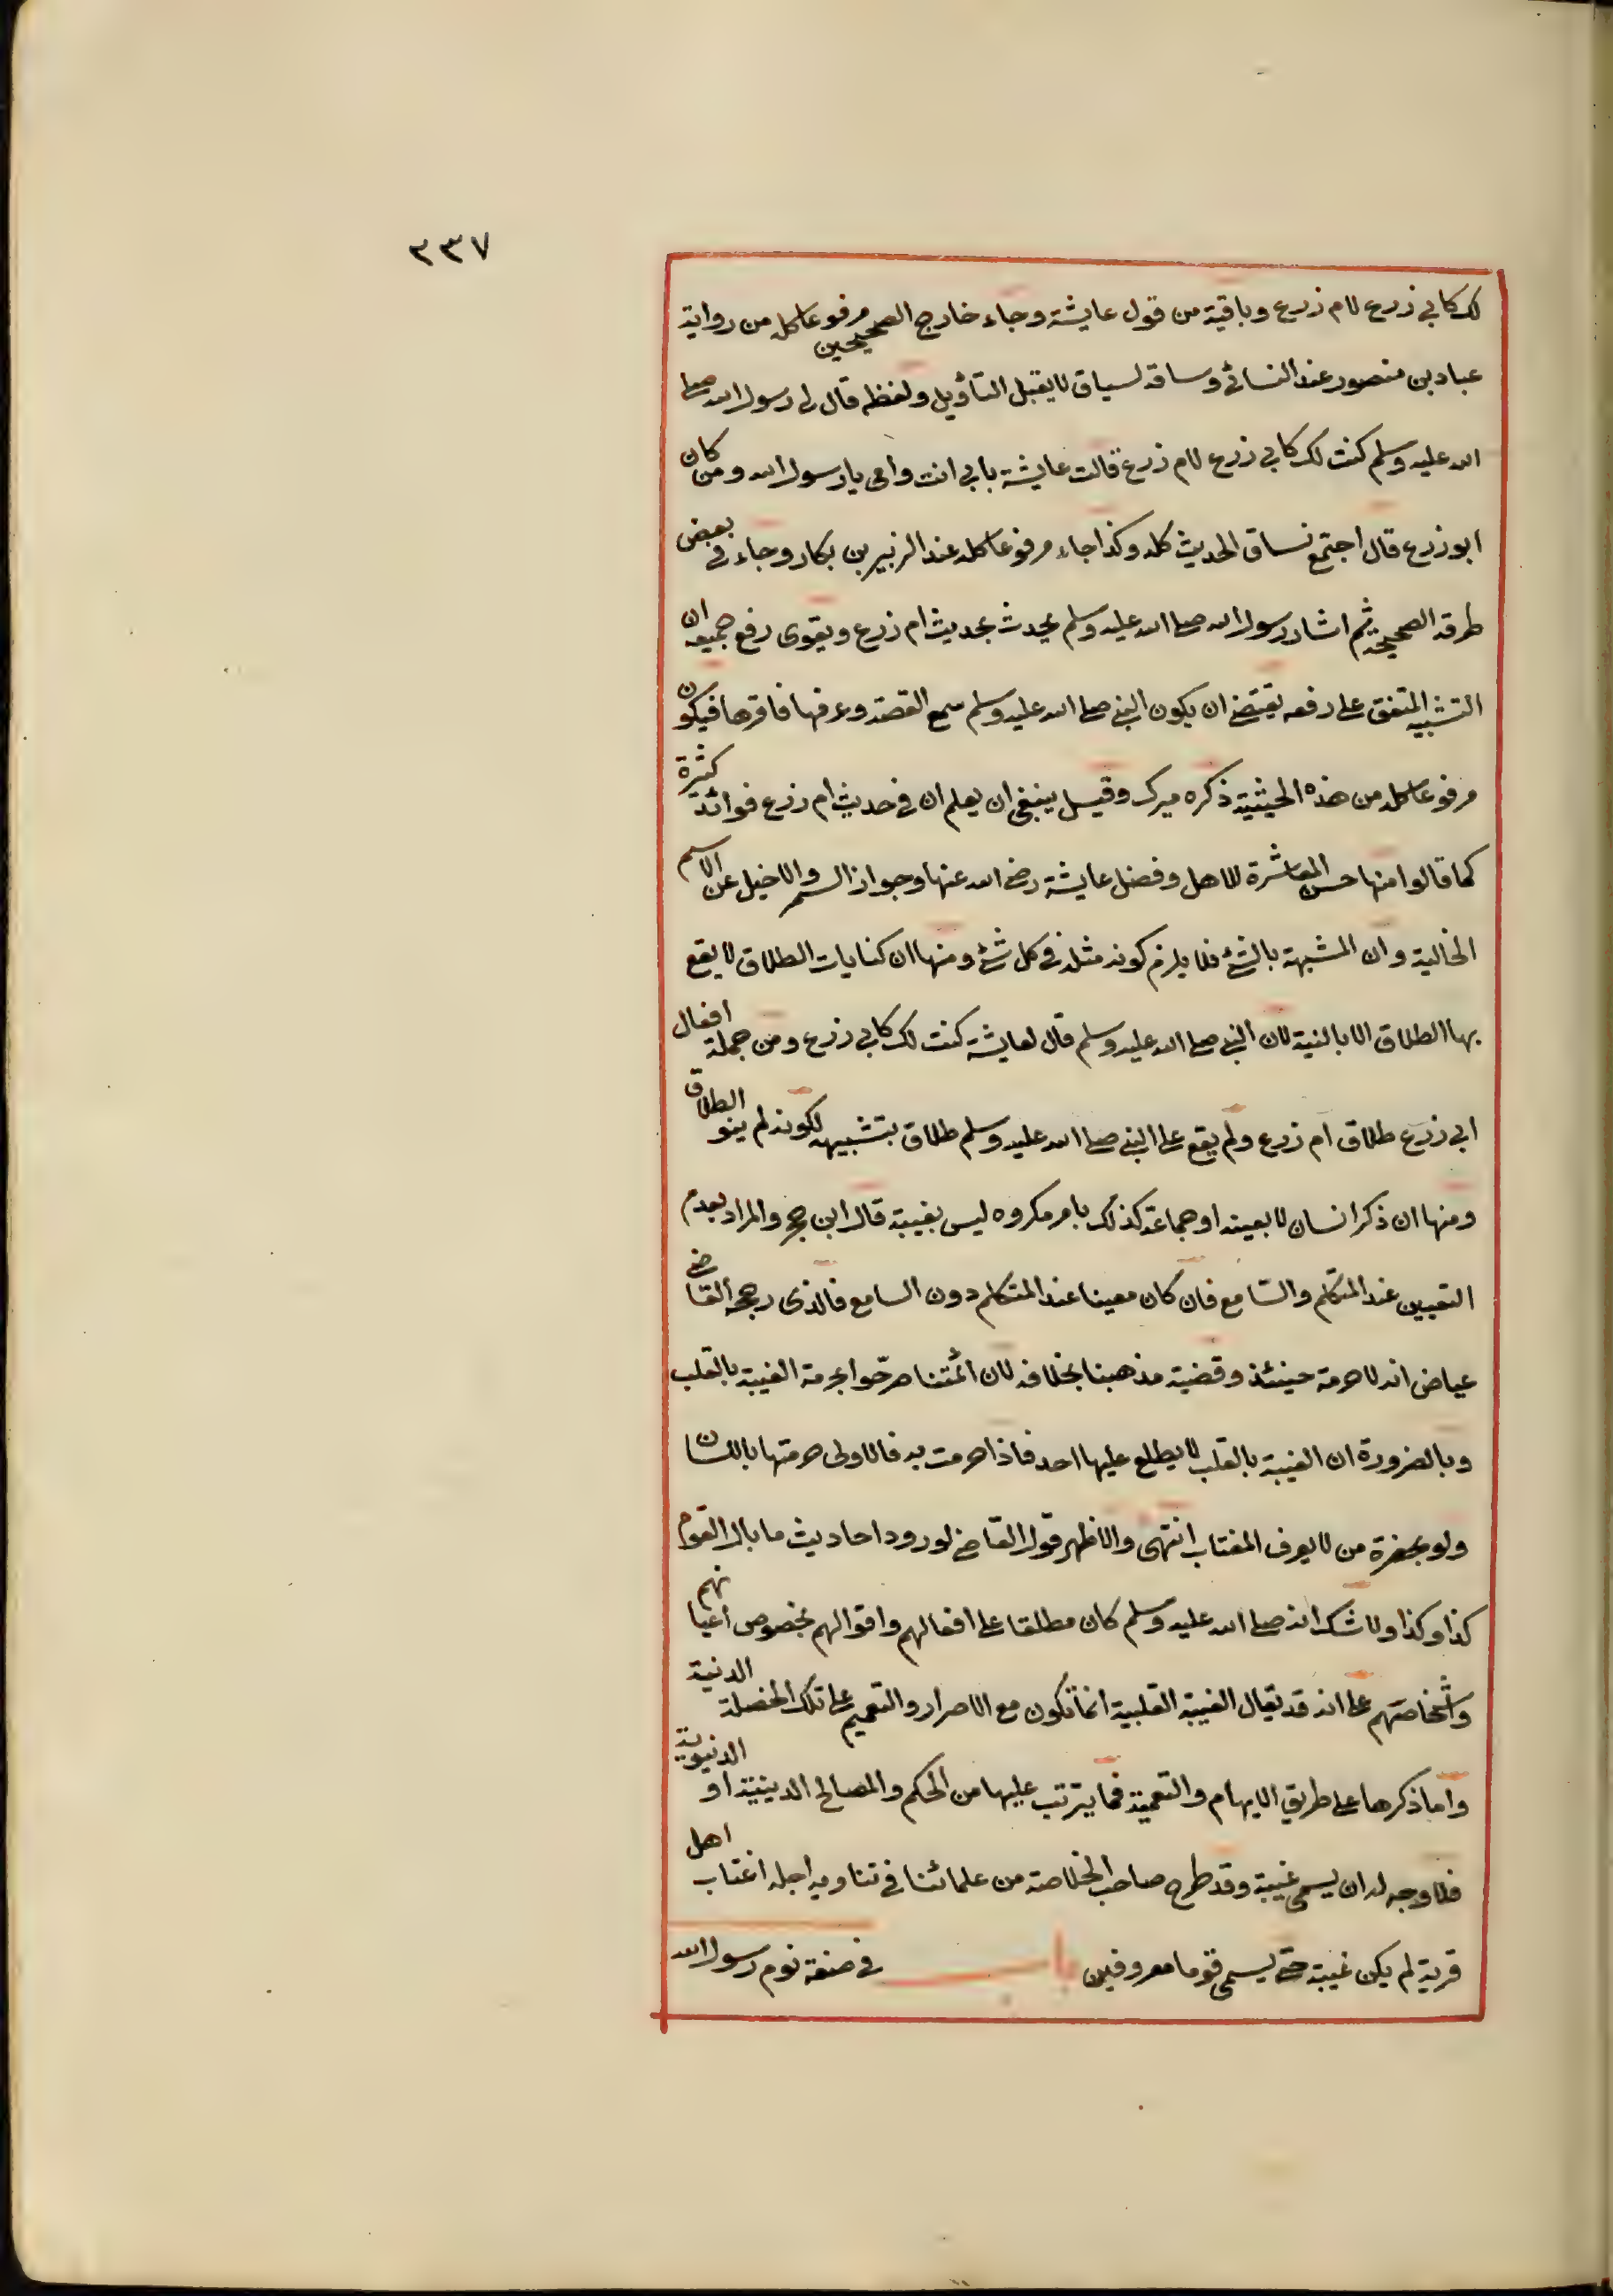 ٢٣٧
لك كابي زرع لام زرع وباقية من قول عايشة وجاء خارج الصحيحين مرفوعا كله من رواية
عباد بن منصور عند النسائي وساقه لسياق لا يقبل التأويل ولفظه قال لي رسول الله صلى
الله عليه وسلم كنت لك كابي زرع لام زرع قالت عايشة بابي انت وامي يا رسول الله ومن كان
ابو زرع قال اجتمع نساق الحديث كله وكذا جاء مرفوعا كله عند الزبير بن بكار وجاء في بعض
طرقه الصحيحة ثم انشاد رسول الله صلى الله عليه وسلم يحدث بحديث ام زرع ويقوى رفع جميعه ان
التشبيه المتفق على رفعه يقتضي ان يكون النبي صلى الله عليه وسلم سمع القصة وعرفها فاقرها فيكون
مرفوعا كله من هذه الحيثية ذكره ميرك وقيل ينبغي ان يعلم ان في حديث ام زرع فوائد كثيرة
كما قالوا منها حسن المعاشرة للاهل وفضل عايشة رضي الله عنها وجواز السمر والاخيل عن الامم
الخالية وان المشبهة بالشئ فلا يلزم كونه مثله في كل شئ ومنها ان كنايات الطلاق لا يقع
بها الطلاق الا بالنية لان النبي صلى الله عليه وسلم قال لعايشة كنت لك كابي زرع ومن جملة افعال
ابي زرع طلاق ام زرع ولم يقع على النبي صلى الله عليه وسلم طلاق بتشبيهه لكونه لم ينو الطلاق
ومنها ان ذكر انسان لا بعينه او جماعة كذلك بامر مكروه ليس بغيبة قال ابن حجر والمراد بعدم
التعيين عند المتكلم والسامع فان كان معينا عند المتكلم دون السامع فالذى رجحه القاضي
عياض انه لا حرمة حينئذ وقضية مذهبنا بخلافه لان ائمتنا صرّحوا بحرمة الغيبة بالقلب
وبالضرورة ان الغيبة بالقلب لا يطلع عليها احد فاذا حرمت به فالاولى حرمتها باللسان
ولو بحضرة من لا يعرف المغتاب انتهى والاظهر قول القاضي لورود احاديث ما بال القوم
كذا وكذا ولا شك انه صلى الله عليه وسلم كان مطلقا على افعالهم واقوالهم بخصوص اعيانهم
واشخاصهم على انه قد يقال الغيبة القلبية انما تكون مع الاصرار والتعميم على تلك الخصلة الدنية
واما ذكرها على طريق الابهام والتعمية فما يترتب عليها من الحكم والمصالح الدينية او الدنيوية
فلا وجه له ان يسمى غيبة وقد طرح صاحب الخلاصة من علمائنا في تناويه اجله اغتاب اهل
قرية لم يكن غيبة حتى يسمى قوما معروفين باب في صفة نوم رسول الله